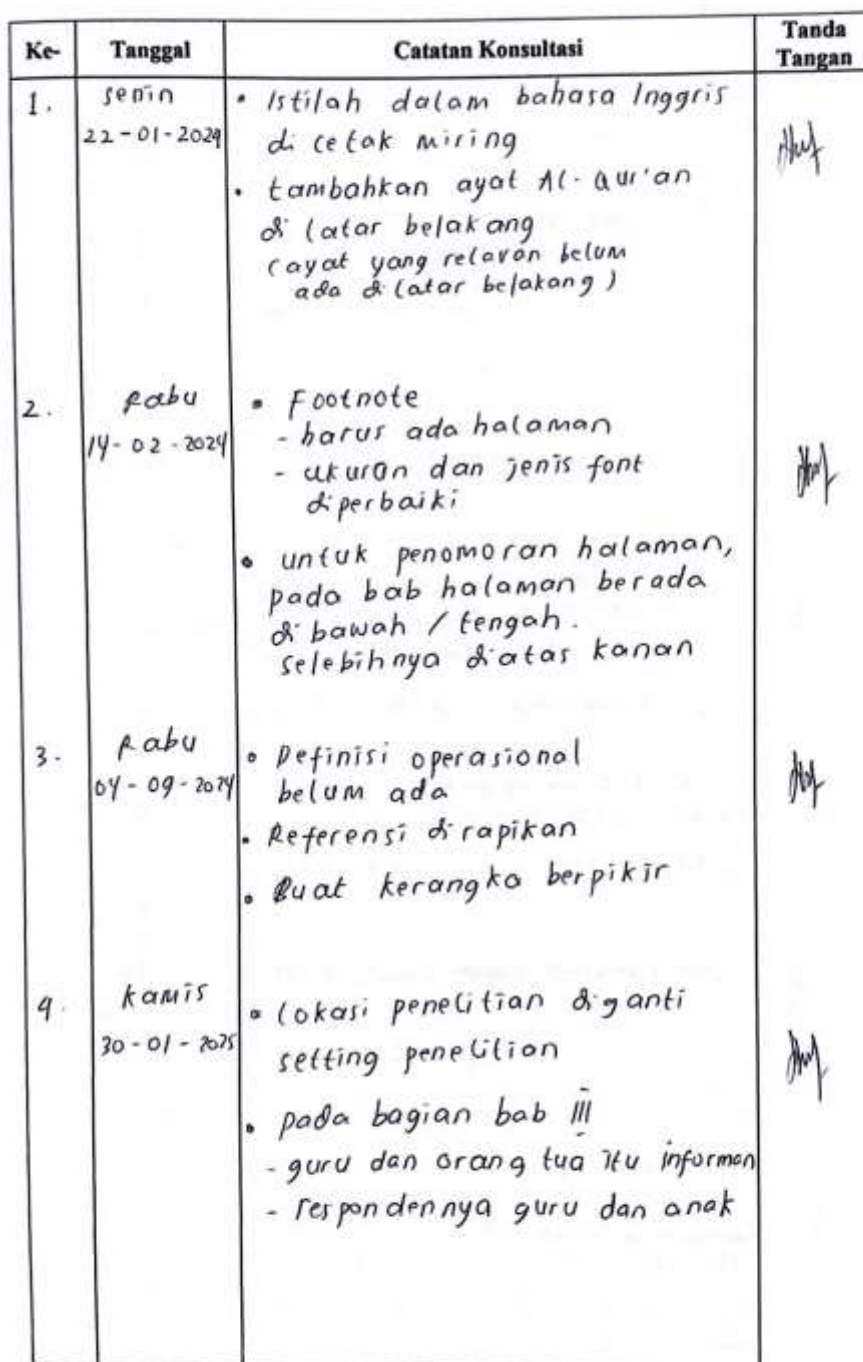 Ke-
Tanggal
Catatan Konsultasi
Tanda
Tangan
1.
senin
22-01-2024
• Istilah dalam bahasa Inggris
di cetak miring
• tambahkan ayat Al-Qur'an
di latar belakang
(ayat yang relavan belum
ada di latar belakang)
2.
Rabu
14-02-2024
• Footnote
- harus ada halaman
- ukuran dan jenis font
diperbaiki
• untuk penomoran halaman,
pada bab halaman berada
di bawah / tengah.
selebihnya diatas kanan
3.
Rabu
04-09-2024
• Definisi operasional
belum ada
• Referensi dirapikan
• Buat kerangka berpikir
4.
kamis
30-01-2025
• lokasi penelitian diganti
setting penelitian
• pada bagian bab III
- guru dan orang tua itu informan
- respondennya guru dan anak